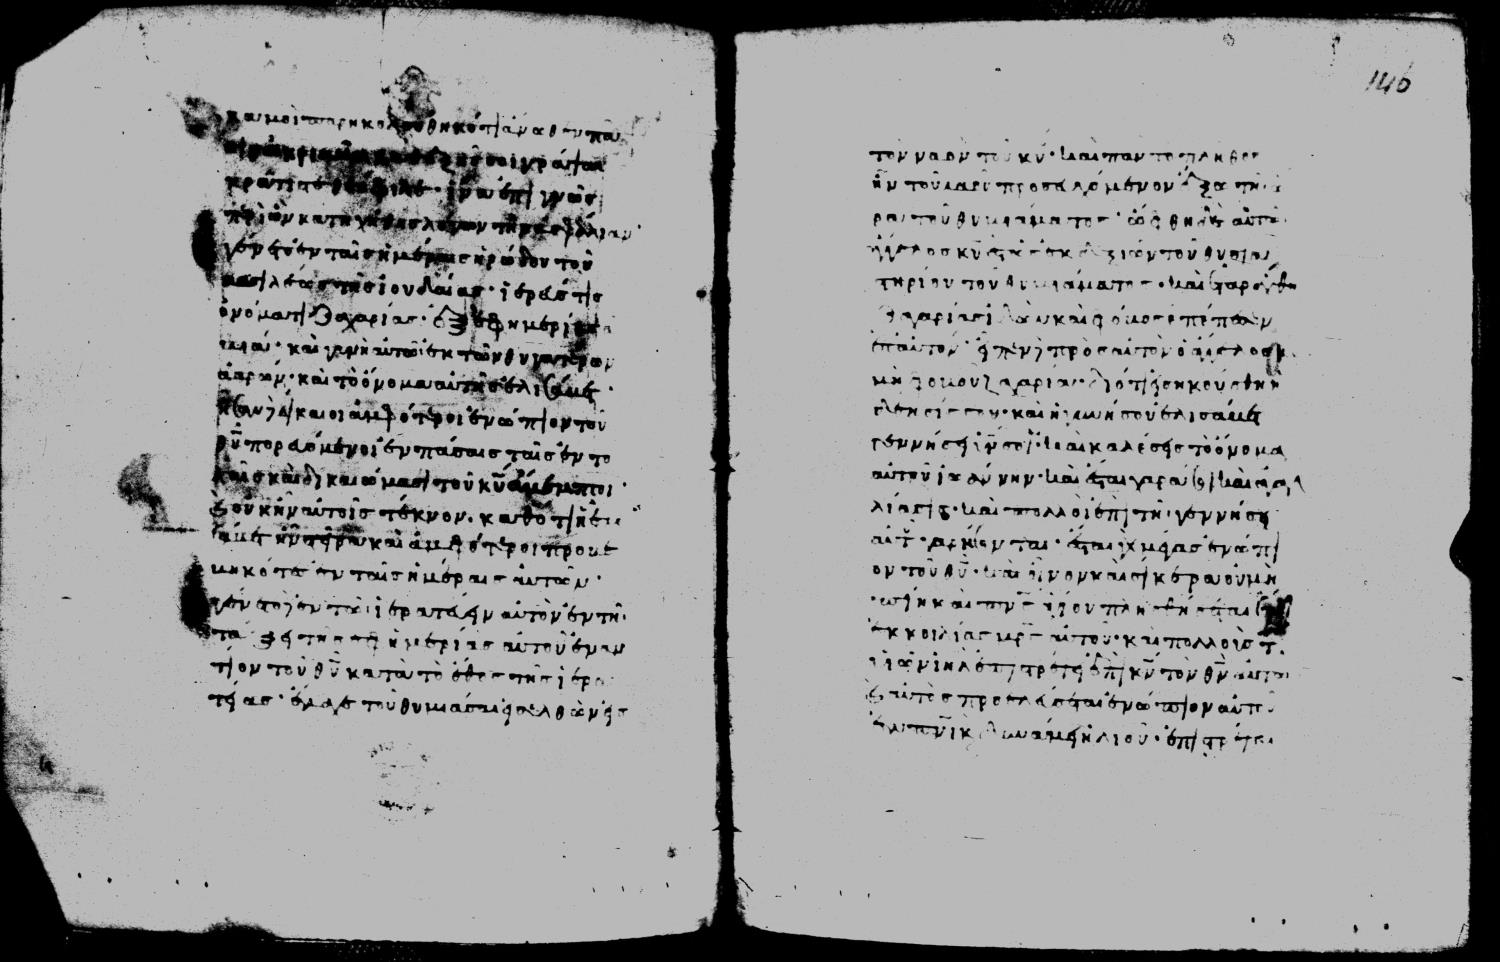 καμοὶ παρηκολουθηκότι ἄνωθεν πᾶ
σιν ἀκριβῶς καθεξῆς σοι γράψαι
κράτιστε θεόφιλε· ἵνα ἐπιγνῶς
περὶ ὧν κατηχήθης λόγων τὴν ἀσφάλειαν·
γένετο ἐν ταῖς ἡμέραις ἡρώδου τοῦ
βασιλέως τῆς ἰουδαίας· ἱερεύς τις
ὀνόματι Ζαχαρίας· ἐξ ἐφημερίας
ἀβιά· καὶ ἡ γυνὴ αὐτοῦ ἐκ τῶν θυγατέρων
ἀαρών· καὶ τὸ ὄνομα αὐτῆς ἐλισάβετ·
ἦσαν δὲ δίκαιοι ἀμφότεροι ἐνώπιον τοῦ
θῦ πορευόμενοι ἐν πάσαις ταῖς ἐντο
λαῖς καὶ δικαιώμασι τοῦ κῦ ἄμεμπτοι·
καὶ οὐκ ἦν αὐτοῖς τέκνον. καθότι ἡ ἐλι
σάβετ ἦν στεῖρα καὶ ἀμφότεροι προβε
βηκότες ἐν ταῖς ἡμέραις αὐτῶν·
γένετο δὲ ἐν τῷ ἱερατεύειν αὐτὸν ἐν τῇ
τάξει τῆς ἐφημερίας αὐτοῦ ἔναν
τιον τοῦ θῦ κατὰ τὸ ἔθος τῆς ἱερα
τείας· ἔλαχε τοῦ θυμιάσαι εἰσελθὼν εἰς
τὸν ναὸν τοῦ κῦ· καὶ πᾶν τὸ πλῆθος
ἦν τοῦ λαοῦ προσευχόμενον ἔξω τῇ ὥ
ρα τοῦ θυμιάματος· ὤφθη δὲ αὐτῶ
ἄγγελος κῦ ἑστὼς ἐκ δεξιῶν τοῦ θυσιασ
τηρίου τοῦ θυμιάματος· καὶ ἐταράχθη
Ζαχαρίας ἰδὼν καὶ φόβος ἐπέπεσεν
ἐπ' αὐτόν· εἶπεν δὲ πρὸς αὐτὸν ὁ ἄγγελος
μὴ φοβοῦ ζαχαρία· διότι εἰσηκούσθη ἡ
δέησίς σου· καὶ ἡ γυνή σου ἐλισάβετ
γεννήσει υἱόν σοι· καὶ καλέσεις τὸ ὄνομα
αὐτοῦ ἰωάννην· καὶ ἔσται χαρά σοι καὶ ἀγαλ
λίασις· καὶ πολλοὶ ἐπὶ τῇ γεννήσει
αὐτοῦ χαρήσονται· ἔσται γὰρ μέγας ἐνώπι
ον τοῦ θῦ· καὶ οἶνον καὶ σίκερα οὐ μὴ
πίῃ καὶ πνς ἁγίου πλησθήσεται
ἐκ κοιλίας μρς αὐτοῦ· καὶ πολλοὺς τ
υἱῶν ἰηλ ἐπιστρέψει ἐπὶ κν τὸν θν αὐτῶ
καὶ αὐτὸς προελεύσεται ἐνώπιον αὐτοῦ
ἐν πνι καὶ δυνάμει ἠλιοῦ· ἐπιστρέψαι